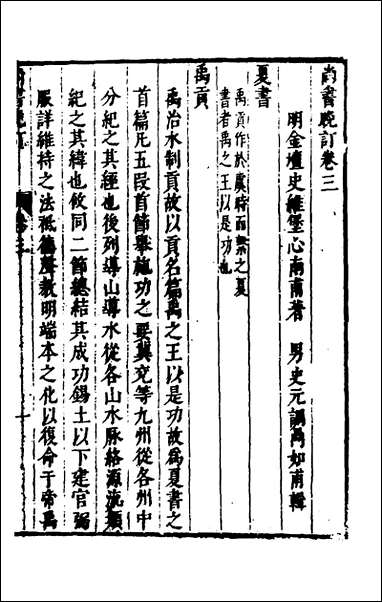 尚書晚訂卷三
明金壇史維堡心南甫著　男史元調鼎如甫輯
夏書
禹貢作於虞時而繫之夏
書者禹之王以是功也
禹貢
禹治水制貢故以貢名篇禹之王以是功故為夏書之
首篇凡五段首節舉施功之要冀兗等九州從各州中
分紀之其經也後列導山導水從各山水脈絡源流類
紀之其緯也攸同二節總結其成功錫土以下建官弼
服詳維持之法祗德聲教明端本之化以復命于帝禹